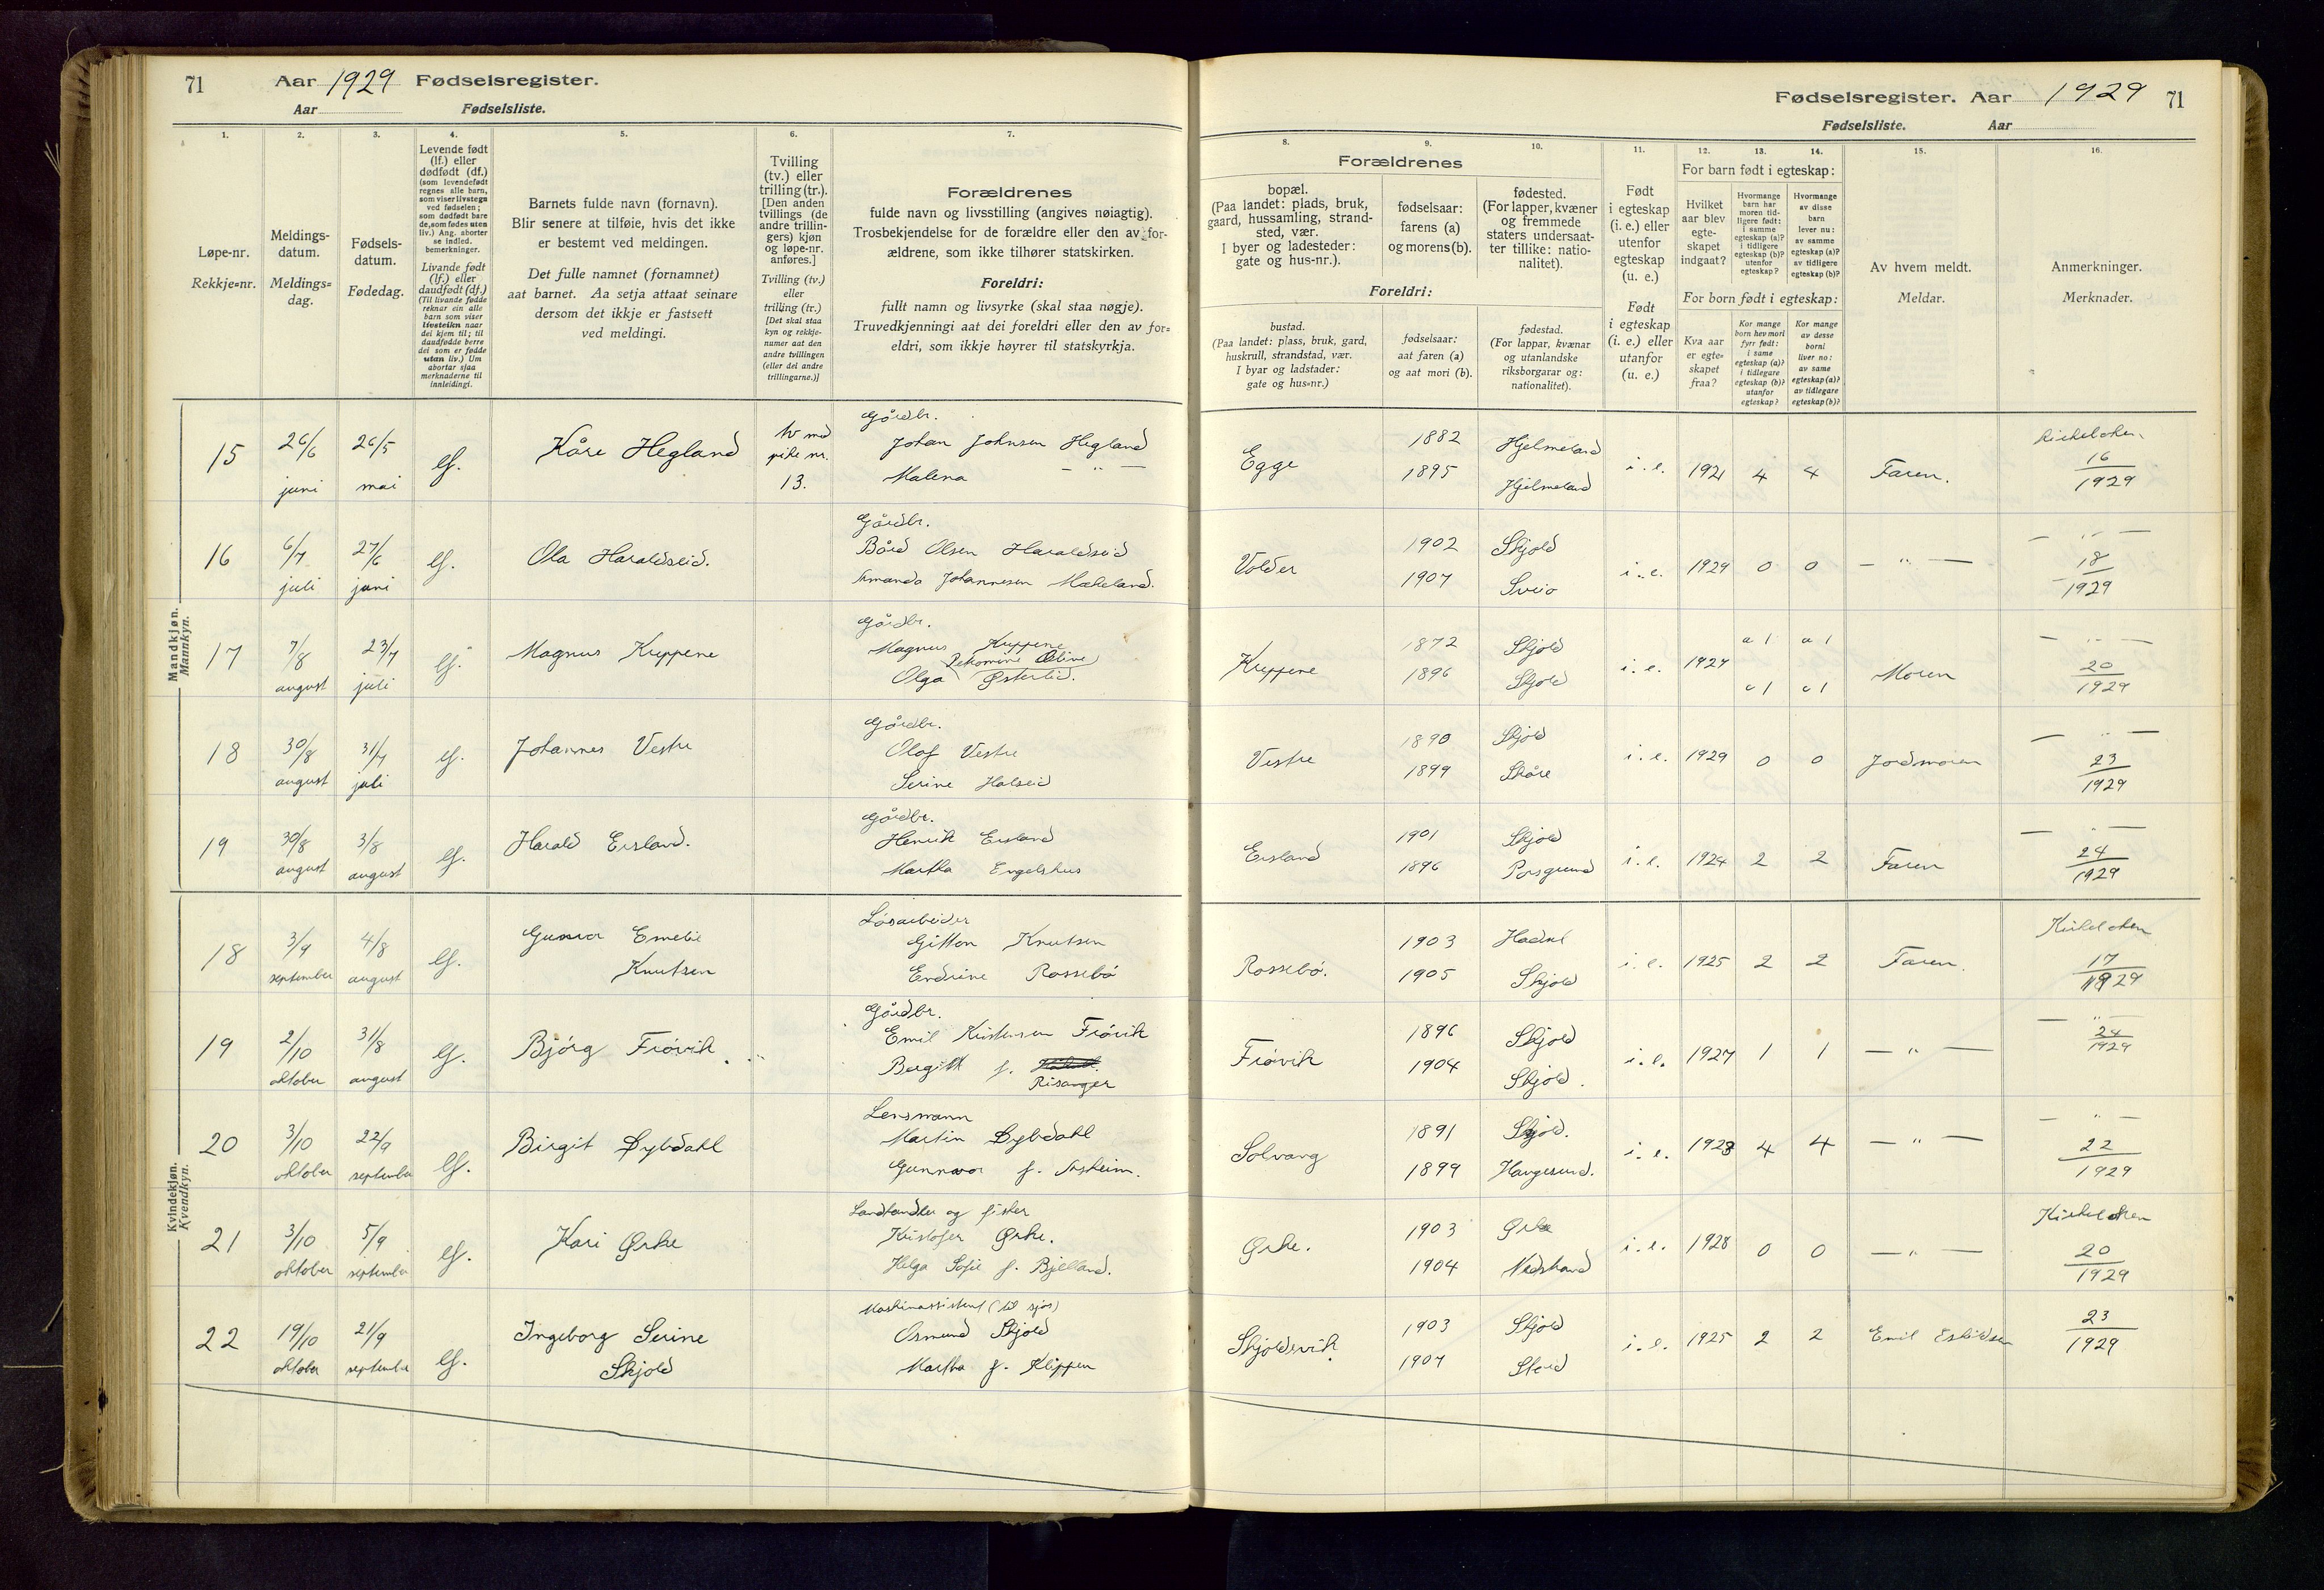 71 Aar 1929 Fødselsregister.
Aar Fødselsliste.
Fødselsregister. Aar 1929 71
Fødselsliste. Aar
1. 2. 3. 4. 5. 6. 7.
Løpe-nr.
Rekkje-nr.
Meldings-
datum.
Meldings-
dag.
Fødsels-
datum.
Fødedag.
Levende født
(lf.) eller
dødfødt (df.)
(som levendefødt
regnes alle barn,
som viser livstegn
ved fødselen;
som dødfødt bare
de, som fødes uten
liv.) Ang. aborter
se indled.
bemerkninger.
Livande født
(lf.) eller
daudfødt (df.)
(Til livande fødde
reknar ein alle
barn som viser
livsteikn naar
dei kjem til; til
daudfødde berre
dei som er fødde
utan liv.) Um
abortar sjaa
merknaderne til
innleidingi.
Barnets fulde navn (fornavn).
Blir senere at tilføie, hvis det ikke
er bestemt ved meldingen.
Det fulle namnet (fornamnet)
aat barnet. Aa setja attaat seinare
dersom det ikkje er fastsett
ved meldingi.
Tvilling
(tv.) eller
trilling (tr.).
[Den anden
tvillings (de
andre trillin-
gers) kjøn
og løpe-nr.
anføres.]
Tvilling (tv.)
eller
trilling (tr.)
[Det skal staa
kyn og rekkje-
numer aat den
andre tvillingen
(eller dei andre
trillingarne.)]
Forældrenes
fulde navn og livsstilling (angives nøiagtig).
Trosbekjendelse for de forældre eller den av for-
ældrene, som ikke tilhører statskirken.
Foreldri:
fullt namn og livsyrke (skal staa nøgje).
Truvedkjenningi aat dei foreldri eller den av for-
eldri, som ikkje høyrer til statskyrkja.
8. 9. 10. 11. 12. 13. 14. 15. 16.
Forældrenes
bopæl.
(Paa landet: plads, bruk,
gaard, hussamling, strand-
sted, vær.
I byer og ladesteder:
gate og hus-nr.).
fødselsaar:
farens (a)
og morens (b).
fødested.
(For lapper, kvæner
og fremmede
staters undersaat-
ter tillike: natio-
nalitet).
Foreldri:
bustad.
(Paa landet: plass, bruk, gard,
huskrull, strandstad, vær.
I byar og ladstader:
gate og hus-nr.)
fødselsaar:
aat faren (a)
og aat mori (b).
fødestad.
(For lappar, kvænar
og utanlandske
riksborgarar og:
nationalitet).
Født
i egteskap
(i. e.) eller
utenfor
egteskap
(u. e.)
Født
i egteskap
(i. e.) eller
utanfor
(u. e.)
For barn født i egteskap:
Hvilket
aar blev
egte-
skapet
indgaat?
Hvormange
barn har
moren tid-
ligere født:
i samme
egteskap (a)?
i tidligere
egteskap (b)?
utenfor
egteskap?
Hvormange
av disse
barn
lever nu:
av samme
egteskap (a)?
av tidligere
egteskap (b)?
For born født i egteskap:
Kva aar
er egte-
skapet
fraa?
Kor mange
born hev mori
fyrr født:
i same
egteskap (a)?
i tidlegare
egteskap (b)?
utanfor
egteskap?
Kor mange
av desse
borni
liver no:
av same
egteskap (a)?
av tidlegare
egteskap (b)?
Av hvem meldt.
Meldar.
Anmerkninger.
Merknader.
Mandkjøn.
Mannkyn.
15 26/6 juni 26/5 mai lf. Kåre Hegland tv med pike nr. 13.
Gårdbr.
Johan Johnsen Hegland
Malena — " —
Egge 1882 1895 Hjelmeland Hjelmeland i. e. 1921 4 4 Faren. 16/1929
16 6/7 juli 27/6 juni lf. Ola Haraldseid.
Gårdbr.
Bård Olsen Haraldseid
Amanda Johannesen Mæland.
1902 1907 Skjold Sveio i. e. 1929 0 0 — " — — " — 18/1929
17 7/8 august 23/7 juli lf. Magnus Kuppene
Gårdbr.
Magnus Kuppene
Olga Østerlid.
Kuppene 1872 1896 Skjold Skjold i. e. 1927 a 1 a 1 Moren — " — 20/1929
18 30/8 august 31/7 juli lf. Johannes Vestre
Gårdbr.
Olaf Vestre
Serine Halseid
Vestre 1890 1899 Skjold Skåre i. e. 1929 0 0 Jordmoren — " — 23/1929
19 30/8 august 3/8 august lf. Harald Ersland.
Gårdbr.
Henrik Ersland
Martha Engelshus
Ersland 1901 1896 Skjold Porsgrund i. e. 1924 2 2 Faren — " — 24/1929
Kvindekjøn.
Kvendkyn.
18 3/9 september 4/8 august lf. Gunvor Emelie Knutsen
Løsarbeider
Gitton Knutsen
Endrine Rossebø
Rossebø. 1903 1905 Skjold i. e. 1925 2 2 Faren. 17/1929
19 2/10 oktober 31/8 august lf. Bjørg Frøvik
Gårdbr.
Emil Kristensen Frøvik
Bergitt f. Risanger
Frøvik 1896 1904 Skjold Skjold. i. e. 1927 1 1 — " — — " — 24/1929
20 3/10 oktober 22/9 september lf. Birgit Dybdahl
Lensmann
Martin Dybdahl
Gunnvor f. Årsheim.
Solvang 1891 1899 Skjold. Haugesund. i. e. 1923 4 4 — " — — " — 22/1929
21 3/10 oktober 5/9 september lf. Kari Ørke
Landhandler og fisker
Kristofer Ørke.
Helga Sofie f. Bjelland.
Ørke. 1903 1904 Ørke Nedstrand i. e. 1928 0 0 — " — 20/1929
22 19/10 oktober 21/9 september lf. Ingeborg Serine Skjold
Maskinassistent (til sjøs)
Osmund Skjold
Martha f. Klippen
Skjoldsvik 1903 1907 Skjold Stord i. e. 1925 2 2 Emil Eskildsen 23/1929